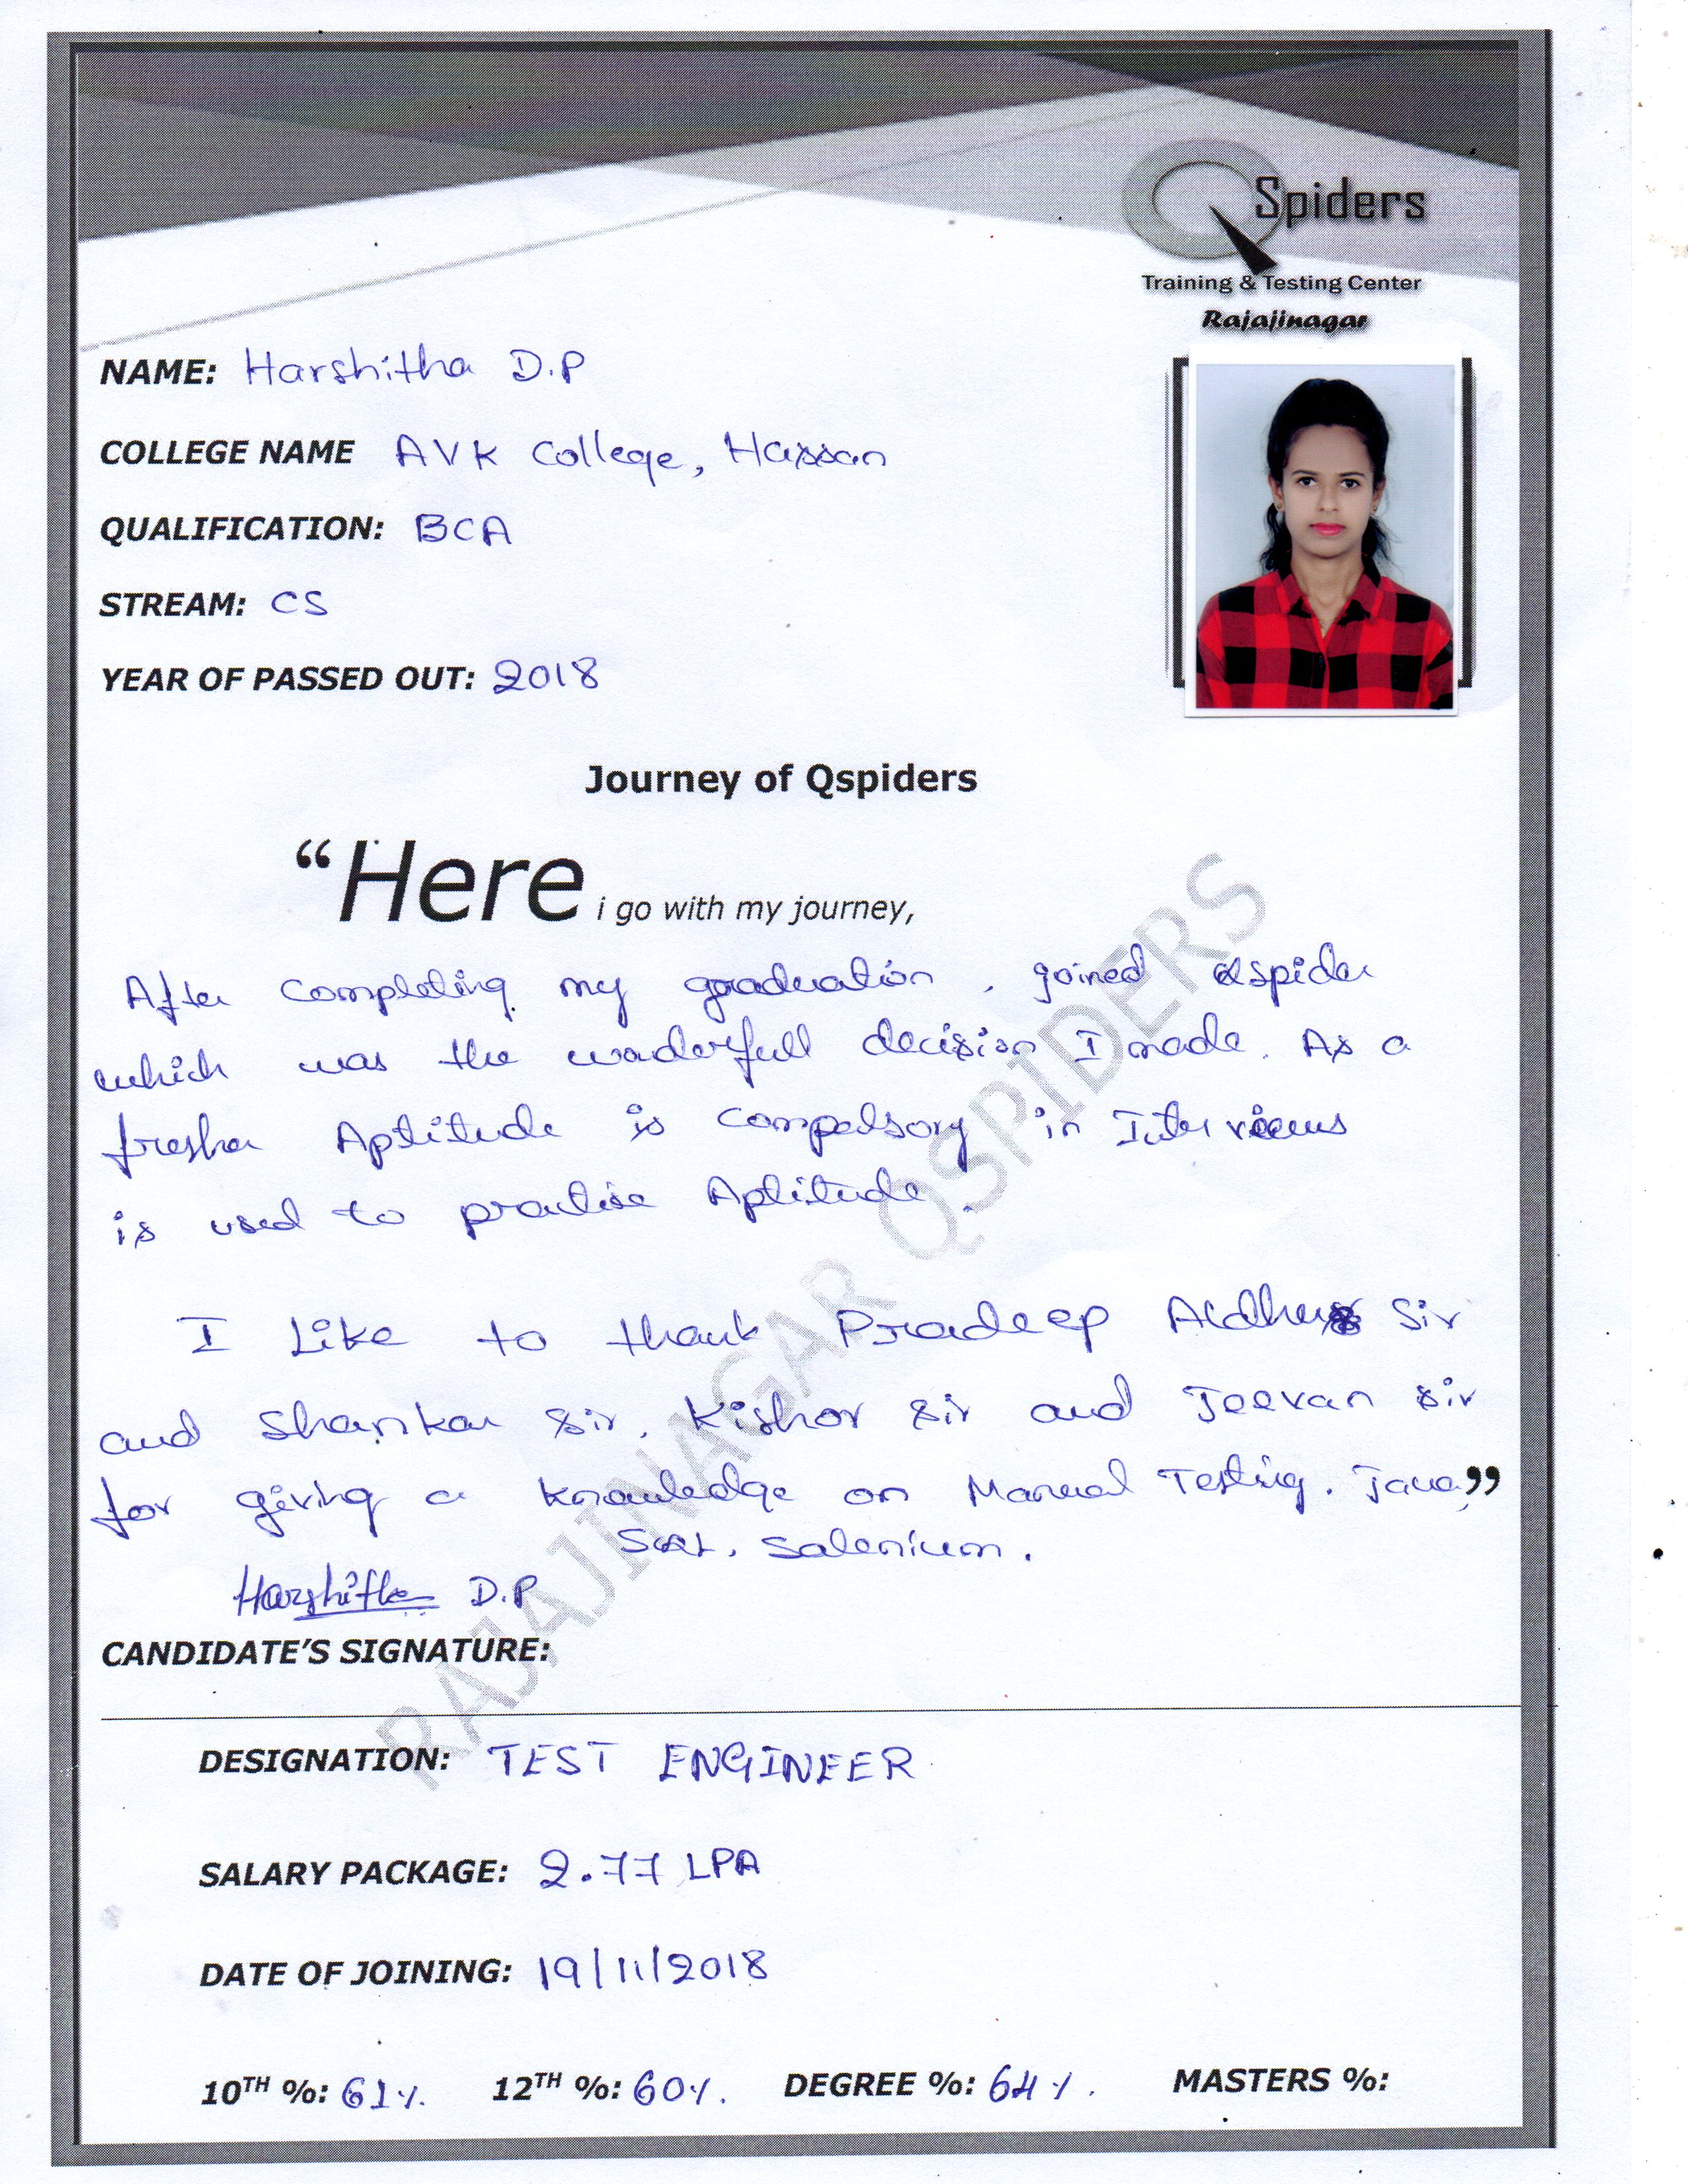 QSpiders
Training & Testing Center
Rajajinagar
NAME: Harshitha D.P
COLLEGE NAME AVK College, Hassan
QUALIFICATION: BCA
STREAM: CS
YEAR OF PASSED OUT: 2018
Journey of Qspiders
“Here i go with my journey,
After completing my graduation, joined Qspider
which was the wonderfull decision I made. As a
fresher Aptitude is compulsory in Interviews
is used to practise Aptitude.
I Like to thank Pradeep Sir
and Shankar Sir, Kishor Sir and Jeevan Sir
for giving a knowledge on Manual Testing. Java,”
SQL, Salenium.
Harshitha D.P
CANDIDATE’S SIGNATURE:
DESIGNATION: TEST ENGINEER
SALARY PACKAGE: 2.77 LPA
DATE OF JOINING: 19/11/2018
10TH %: 61%. 12TH %: 60%. DEGREE %: 64%. MASTERS %:
RAJAJINAGAR QSPIDERS